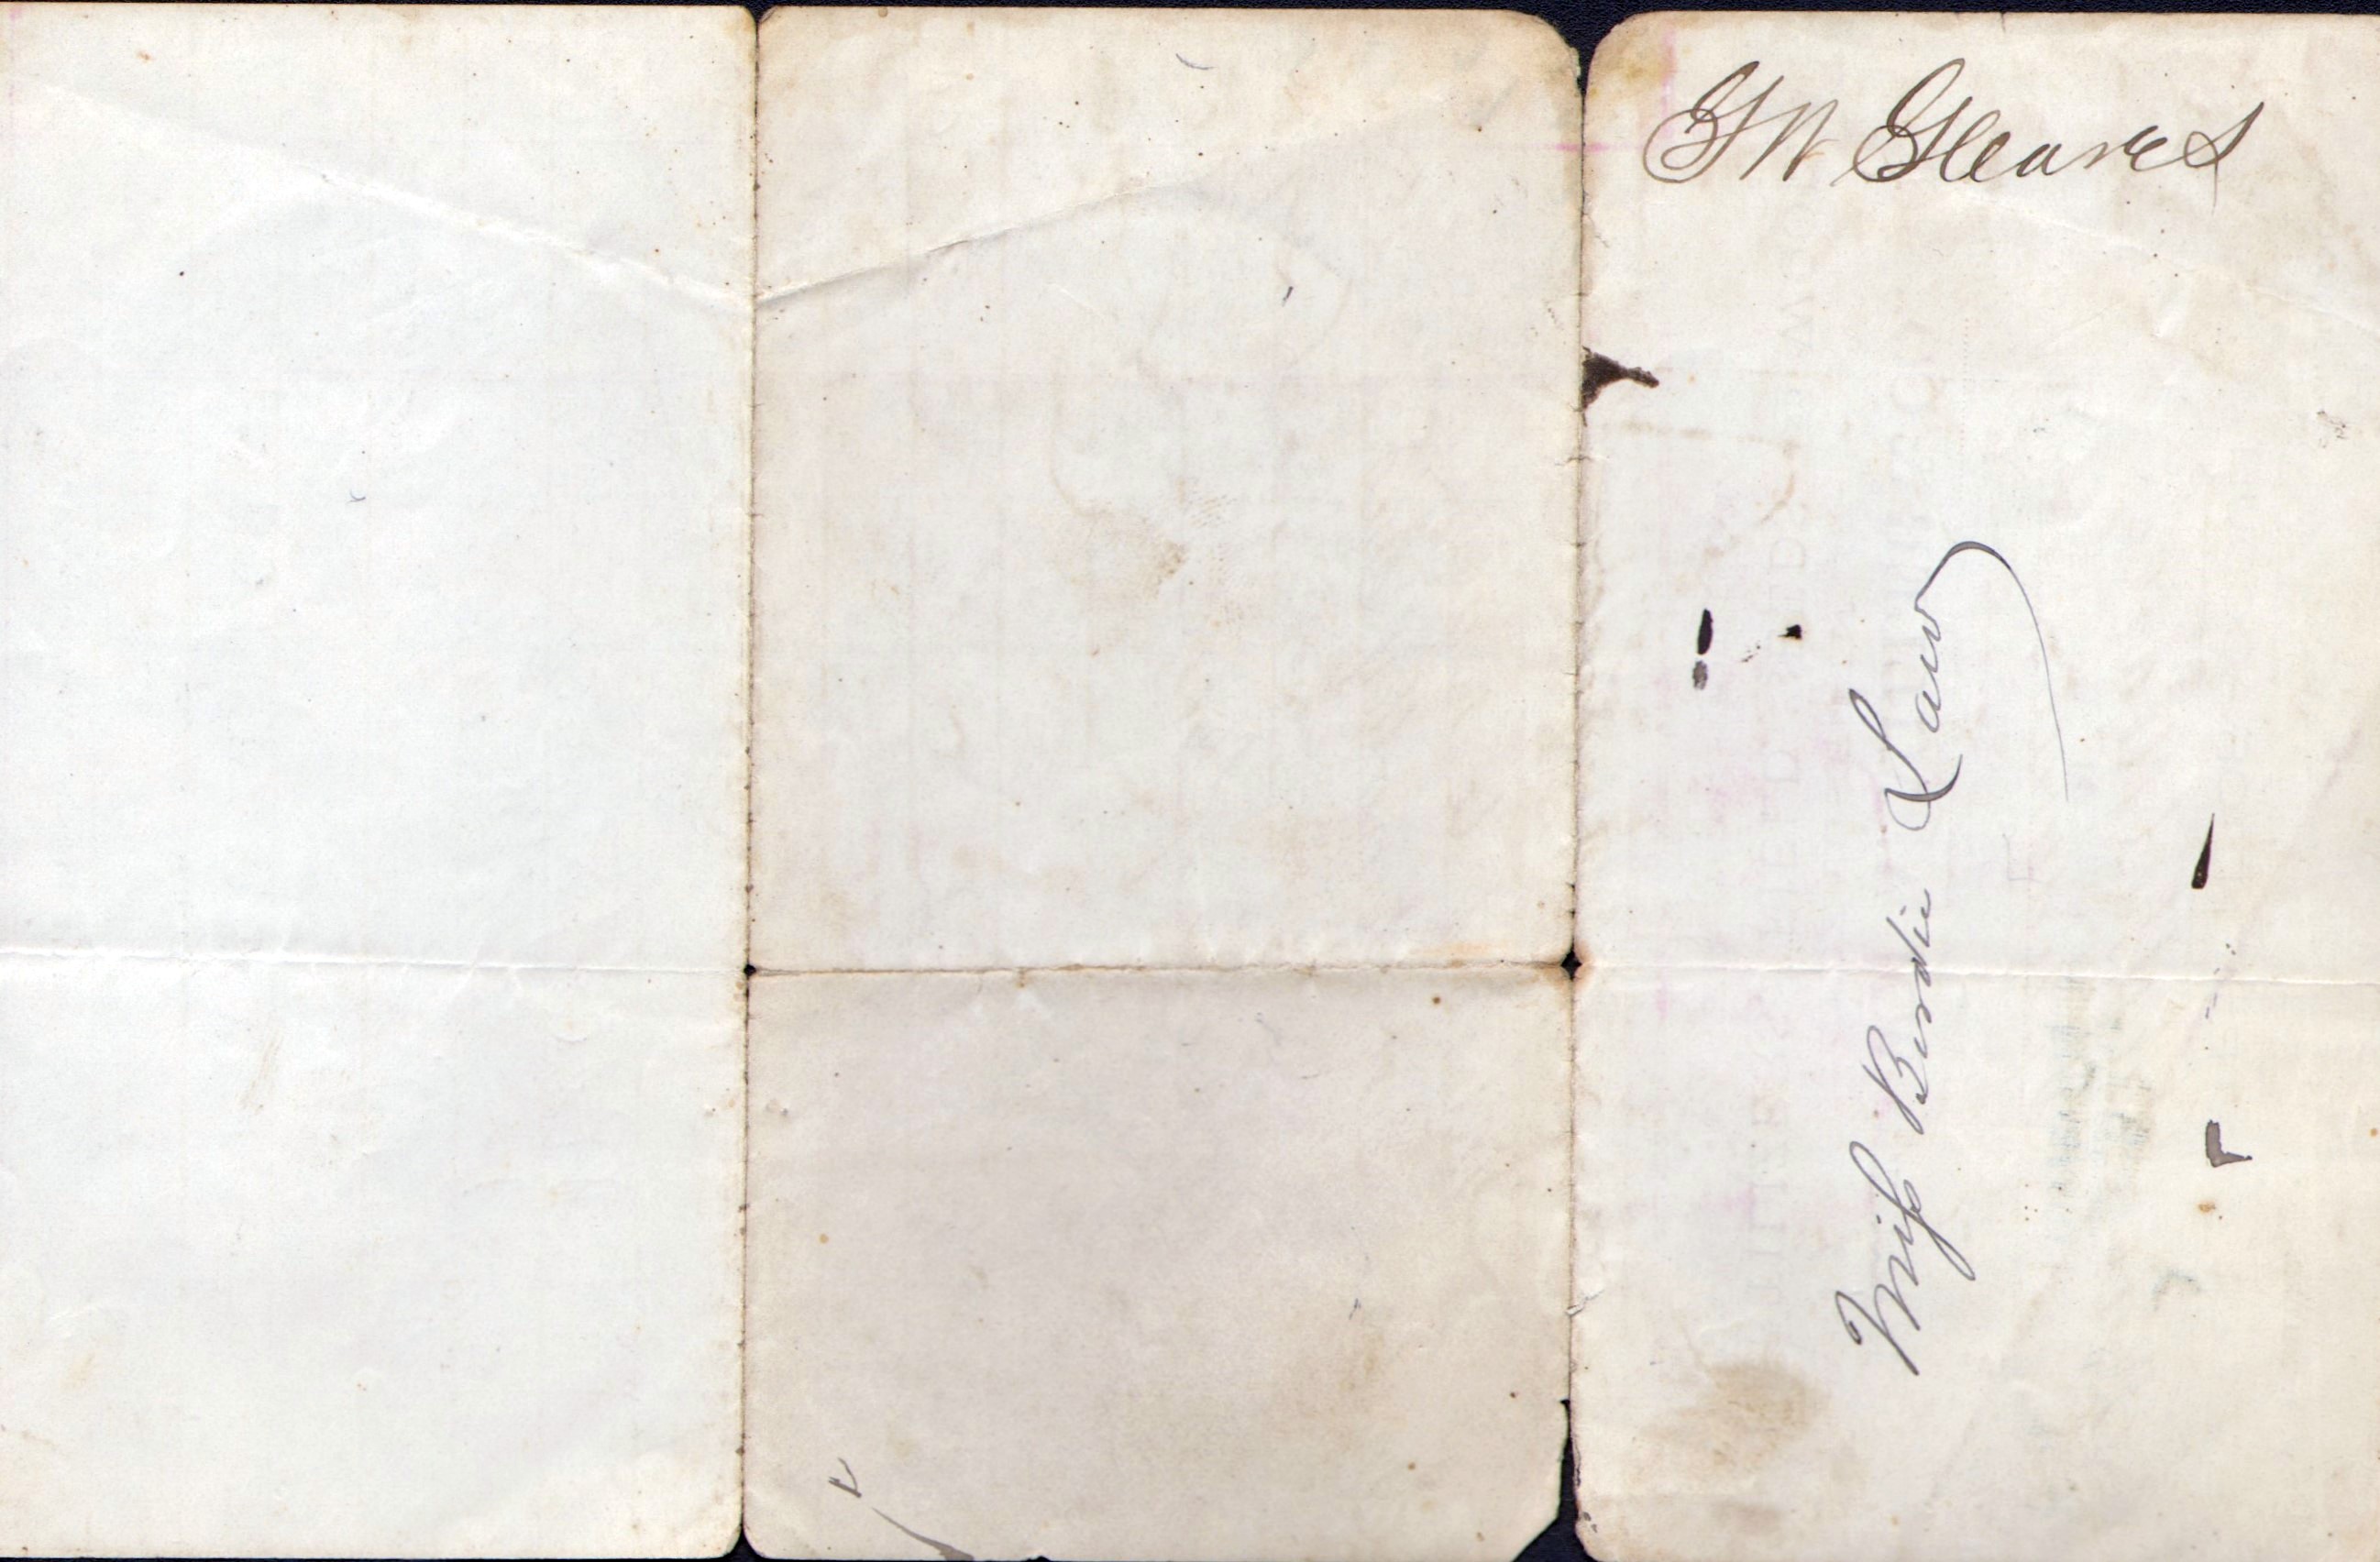 G W Gleaves
Miss Burdie Law